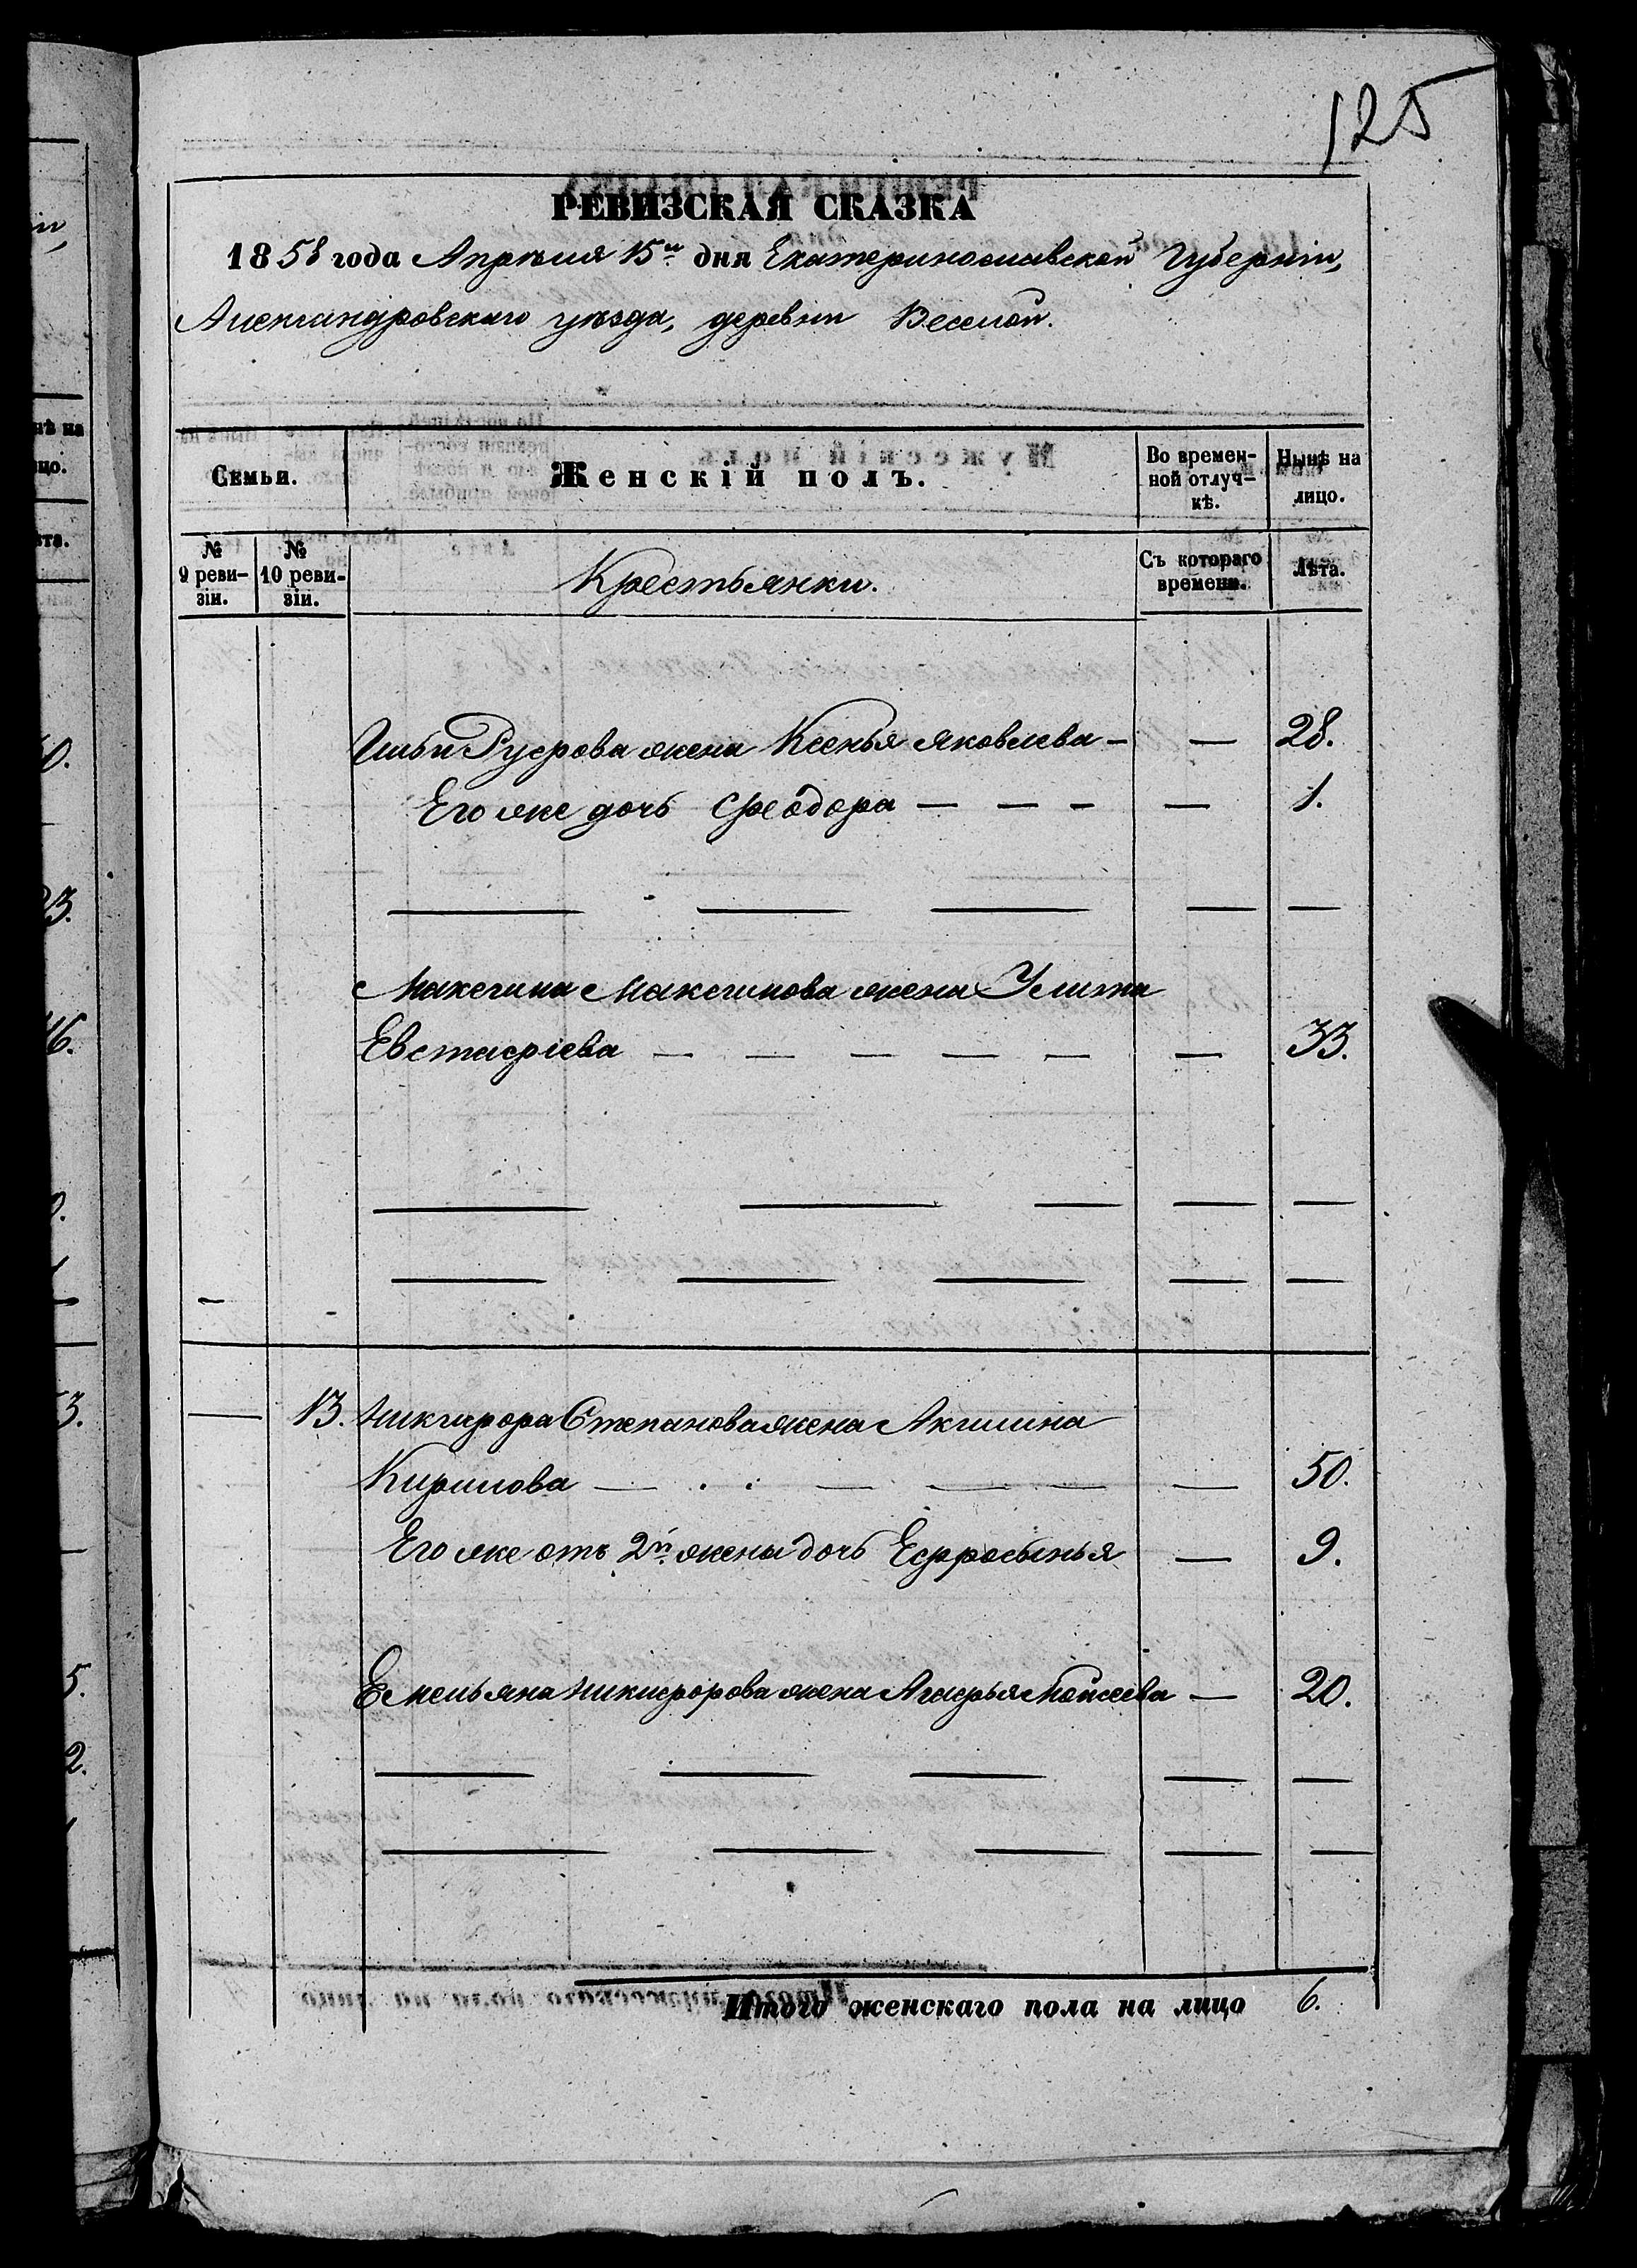 125
РЕВИЗСКАЯ СКАЗКА
1858 года Апрѣля 15го дня Екатеринославской Губерніи,
Александровскаго уѣзда, деревни Веселой.
Семьи.
Женскій полъ.
Во времен-
ной отлуч-
кѣ.
Нынѣ на
лицо.
№
9 реви-
зіи.
№
10 реви-
зіи.
Крестьянки.
Съ котораго
времени.
Лѣта.
Ильи Руфова жена Ксенья Яковлева — — 28.
Его же дочь Феодора — — — — 1.
Максима Максимова жена Улита
Евстафіева — — — — — — 33.
— 13. Никифора Степанова жена Акилина
Кирилова — — — — — 50.
Его же отъ 2й жены дочь Ефросинья — 9.
Емельяна Никифорова жена Агафья Моисеева — 20.
Итого женскаго пола на лицо 6.